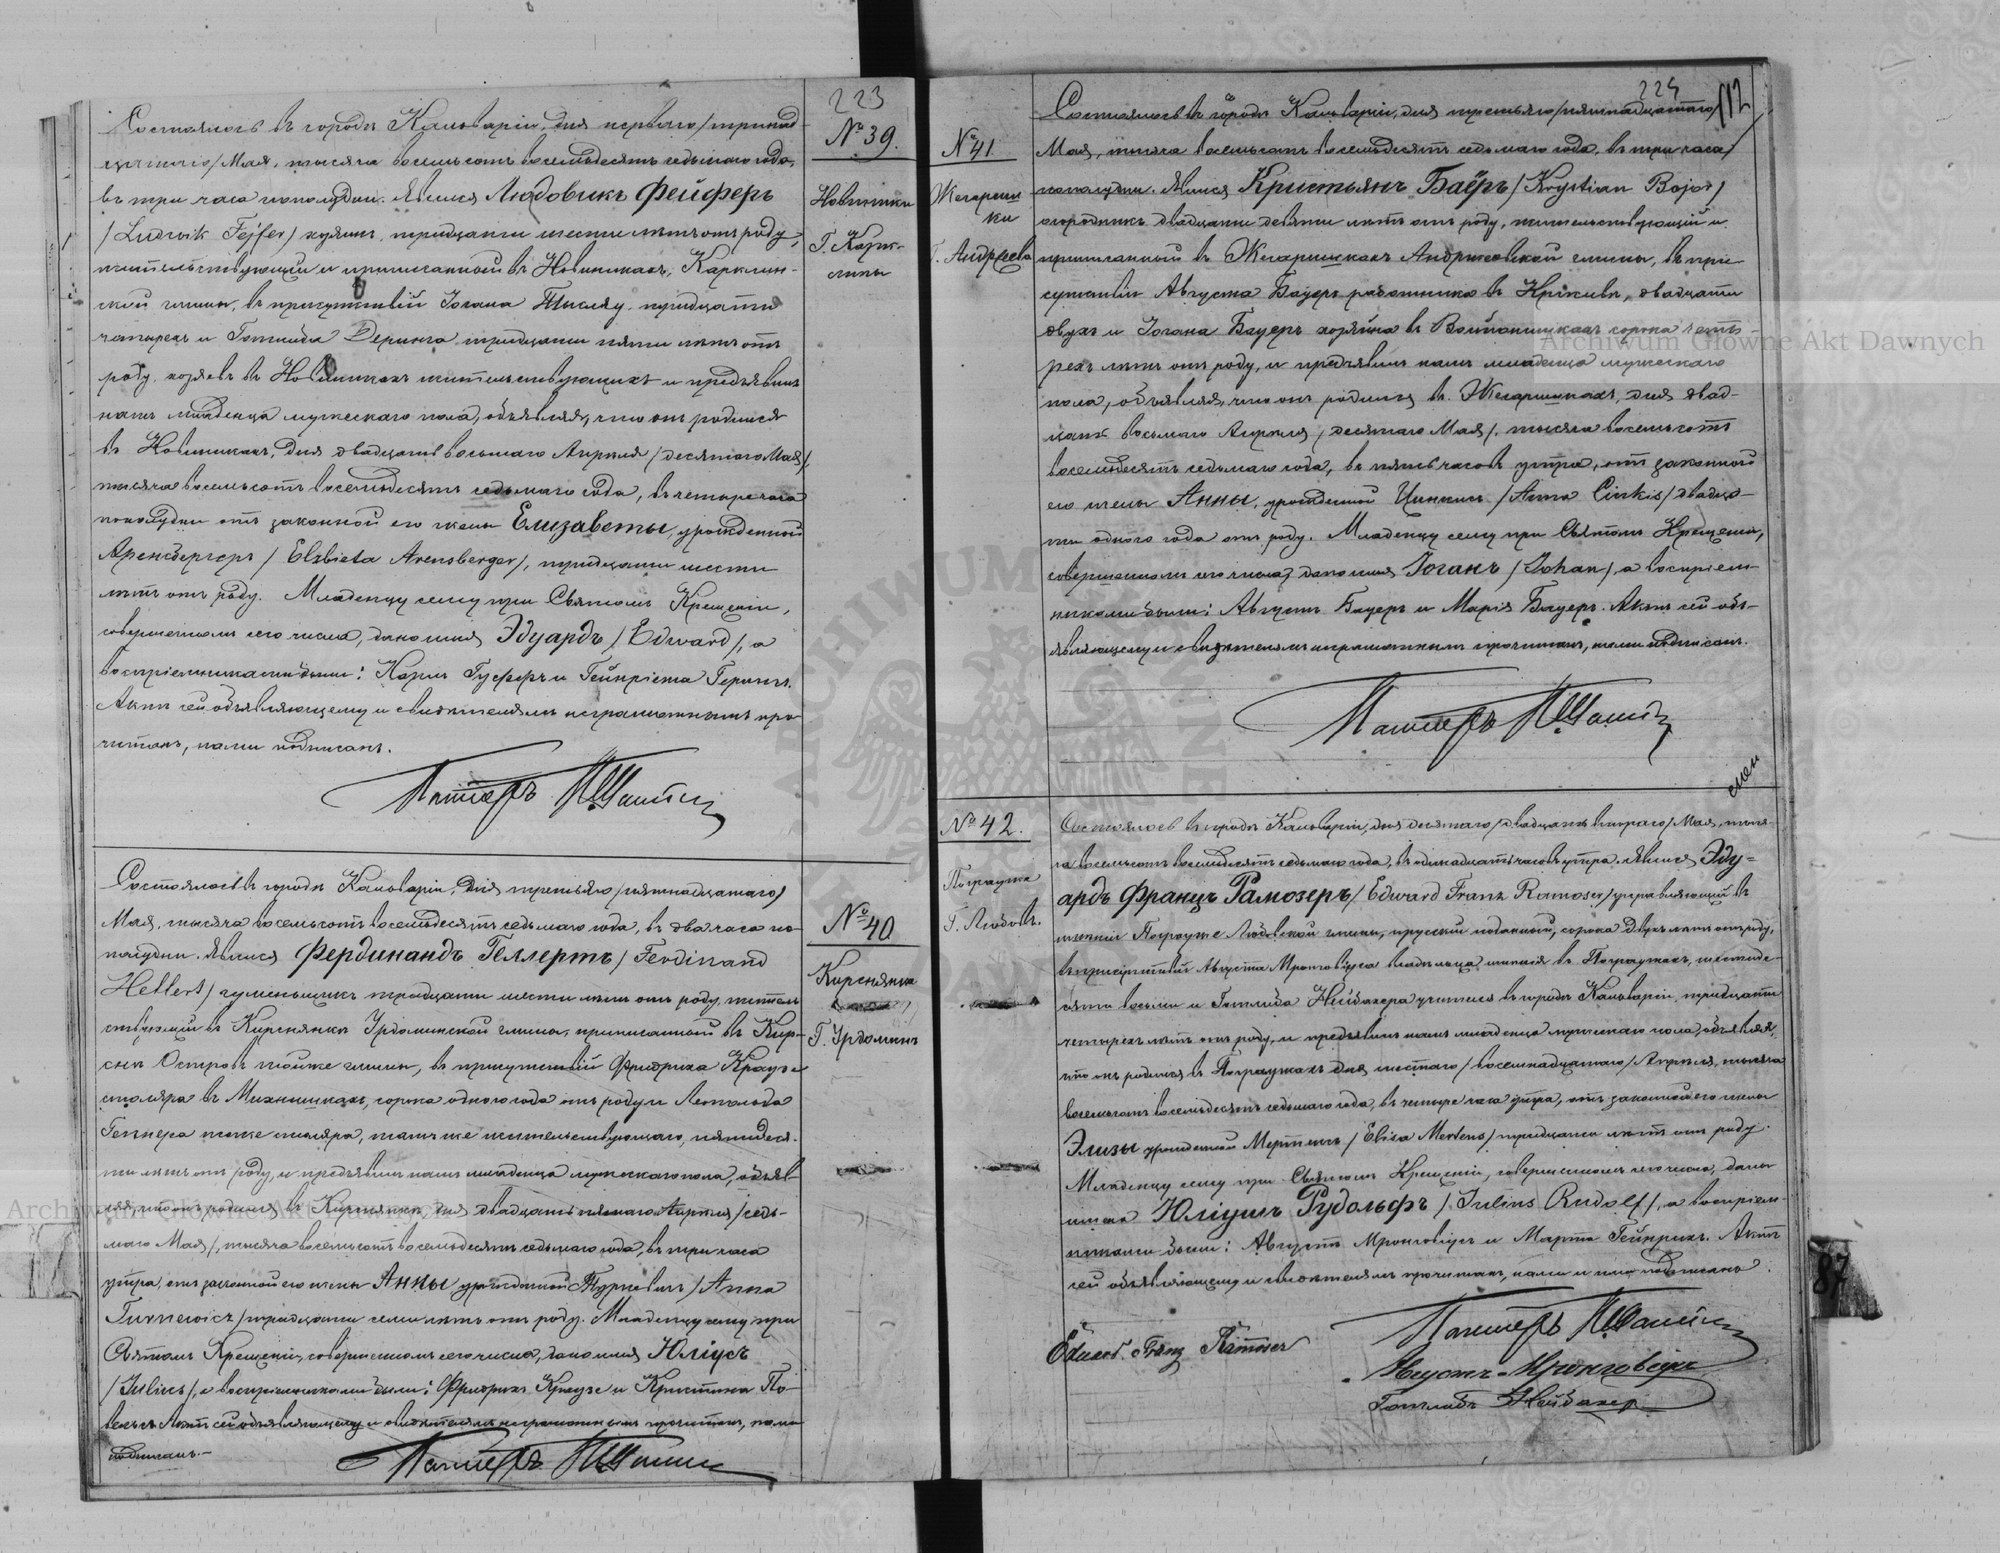 223
№ 39.
Новинники
Г. Карк-
лины
Состоялось въ городѣ Кальваріи, дня перваго /тринад-
цатаго/ Мая, тысяча восемьсотъ восемьдесятъ седьмаго года,
въ три часа пополудни. Явился Людовикъ Фейферъ
/Ludwik Fejfer/ тридцати шести лѣтъ отъ роду,
жительствующій и приписанный въ Новинникахъ, Карклин-
ской гмины, въ присутствіи Іогана тридцати
четырехъ и Готлиба Деринга тридцати пяти лѣтъ отъ
роду, хозяевъ въ Новинникахъ жительствующихъ и предъявилъ
намъ младенца мужескаго пола, объявляя, что онъ родился
въ Новинникахъ, дня двадцать восьмаго Апрѣля /десятаго Мая/,
тысяча восемьсотъ восемьдесятъ седьмаго года, въ четыре часа
пополудни отъ законной его жены Елизаветы, урожденной
Аренсбергеръ /Elzbieta Arensberger/, тридцати шести
лѣтъ отъ роду. Младенцу сему при Святомъ Крещеніи,
совершенномъ сего числа, дано имя Эдуардъ /Edward/, а
воспріемниками были: Карлъ и Гейнріета Герингъ.
Актъ сей объявляющему и свидѣтелямъ неграмотнымъ про-
читанъ, нами подписанъ.
Пасторъ
№ 40
Кирснянка
Г. Урдоминъ
Состоялось въ городѣ Кальваріи, дня третьяго /пятнадцатаго/
Мая, тысяча восемьсотъ восемьдесятъ седьмаго года, въ два часа по-
полудни. Явился Фердинандъ Геллертъ /Ferdinand
Hellert/ гуменьщикъ тридцати шести лѣтъ отъ роду, житель-
ствующій въ Кирснянкѣ Урдоминской гмины, приписанный въ Кир-
сна Островъ тойже гмины, въ присутствіи Фридриха Краузе
столяра въ Михнишкахъ, сорока одного года отъ роду и Леопольда
Геннера тоже столяра, тамъ же жительствующаго, пятидеся-
ти лѣтъ отъ роду, и предъявилъ намъ младенца мужескаго пола, объяв-
ляя, что онъ родился въ Кирснянкѣ дня двадцать пятаго Апрѣля /седь-
маго Мая/, тысяча восемьсотъ восемьдесятъ седьмаго года, въ три часа
утра, отъ законной его жены Анны урожденной Турневичъ /Anna
Turnewicz/ тридцати семи лѣтъ отъ роду. Младенцу сему при
Святомъ Крещеніи, совершенномъ сего числа, дано имя Юліусъ
/Julius/, а воспріемниками были: Фридрихъ Краузе и Кристина По-
Актъ сей объявляющему и свидѣтелямъ неграмотнымъ прочитанъ, нами
подписанъ.
Пасторъ
224
112
№ 41
Жегаришки
Г. Андржеевъ
Состоялось въ городѣ Кальваріи, дня третьяго /пятнадцатаго/
Мая, тысяча восемьсотъ восемьдесятъ седьмаго года, въ три часа
пополудни. Явился Кристьянъ Баёръ /Krystian Bojor/
огородникъ двадцати девяти лѣтъ отъ роду, жительствующій и
приписанный въ Жегаришкахъ Андржеевской гмины, въ при-
сутствіи Августа Бауеръ работника въ двадцати
двухъ и Іогана Бауеръ хозяина въ сорока четы-
рехъ лѣтъ отъ роду, и предъявилъ намъ младенца мужескаго
пола, объявляя, что онъ родился въ Жегаришкахъ, дня двад-
цать восьмаго Апрѣля /десятаго Мая/, тысяча восемьсотъ
восемьдесятъ седьмаго года, въ пять часовъ утра, отъ законной
его жены Анны, урожденной Цинкисъ /Anna Cinkis/ двадца-
ти одного года отъ роду. Младенцу сему при Святомъ Крещеніи,
совершенномъ сего числа, дано имя Іоганъ /Johan/, а воспріем-
никами были: Августъ Бауеръ и Марія Бауеръ. Актъ сей объ-
являющему и свидѣтелямъ неграмотнымъ прочитанъ, нами подписанъ.
Пасторъ
№ 42.
Пограужа
Г. Любовъ.
Состоялось въ городѣ Кальваріи, дня десятаго /двадцать втораго/ Мая, тыся-
ча восемьсотъ восемьдесятъ седьмаго года, въ одинадцать часовъ утра. Явился Эду-
ардъ Францъ Рамозеръ /Edward Franz Ramoser/ управляющій въ
имѣніи Пограуже Любовской гмины, прусскій подданный, сорока двухъ лѣтъ отъ роду,
въ присутствіи Августа Мронговіуса владѣльца имѣнія въ Пограужахъ, шестиде-
сяти восьми и Готлиба Нейбахера учителя въ городѣ Кальваріи, тридцати
четырехъ лѣтъ отъ роду, и предъявилъ намъ младенца мужескаго пола, объявляя,
что онъ родился въ Пограужахъ дня шестаго /восемнадцатаго/ Апрѣля, тысяча
восемьсотъ восемьдесятъ седьмаго года, въ четыре часа утра, отъ законной его жены
Элизы урожденной Мертенсъ /Elisa Mertens/ тридцати лѣтъ отъ роду.
Младенцу сему при Святомъ Крещеніи, совершенномъ сего числа, даны
имена Юліушъ Рудольфъ /Julius Rudolf/, а воспріем-
никами были: Августъ Мронговіусъ и Марта Гейнрихъ. Актъ
сей объявляющему и свидѣтелямъ прочитанъ, нами и ими подписанъ.
Пасторъ
Августъ Мронговіусъ
Готлибъ Нейбахеръ
87
Archiwum Główne Akt Dawnych
Archiwum Główne Akt Dawnych